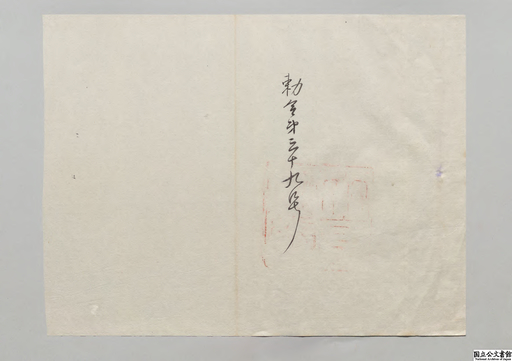 勅令第三十九号
国立公文書館
National Archives of Japan